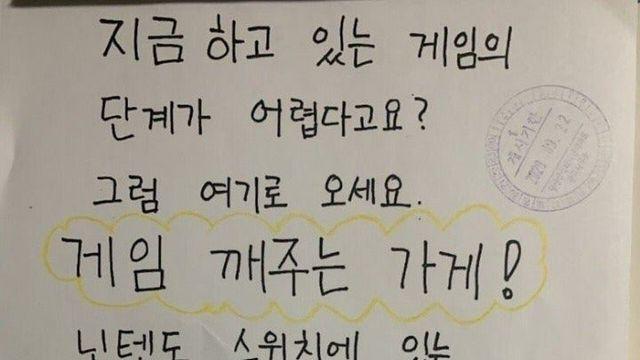 지금 하고 있는 게임의
단계가 어렵다고요?
게시기한
2020. 10. 22
그럼 여기로 오세요.
게임 깨주는 가게!
닌텐도 스위치에 있는